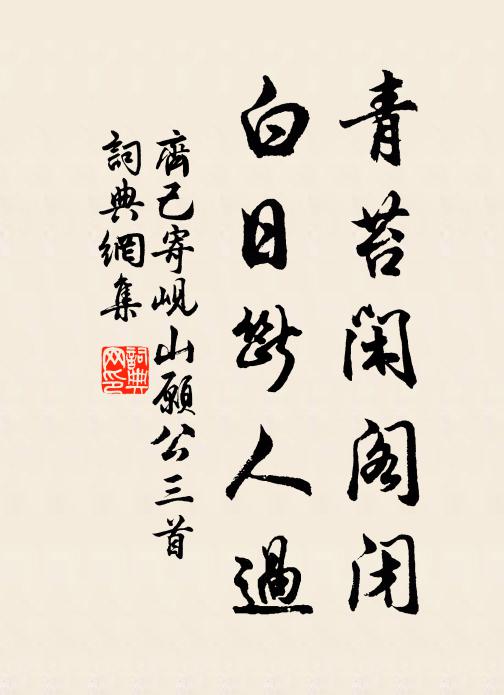 青苔閑阁闭
白日斷人過
齊己寄峴山願公三首
詞典網集
詞典網印